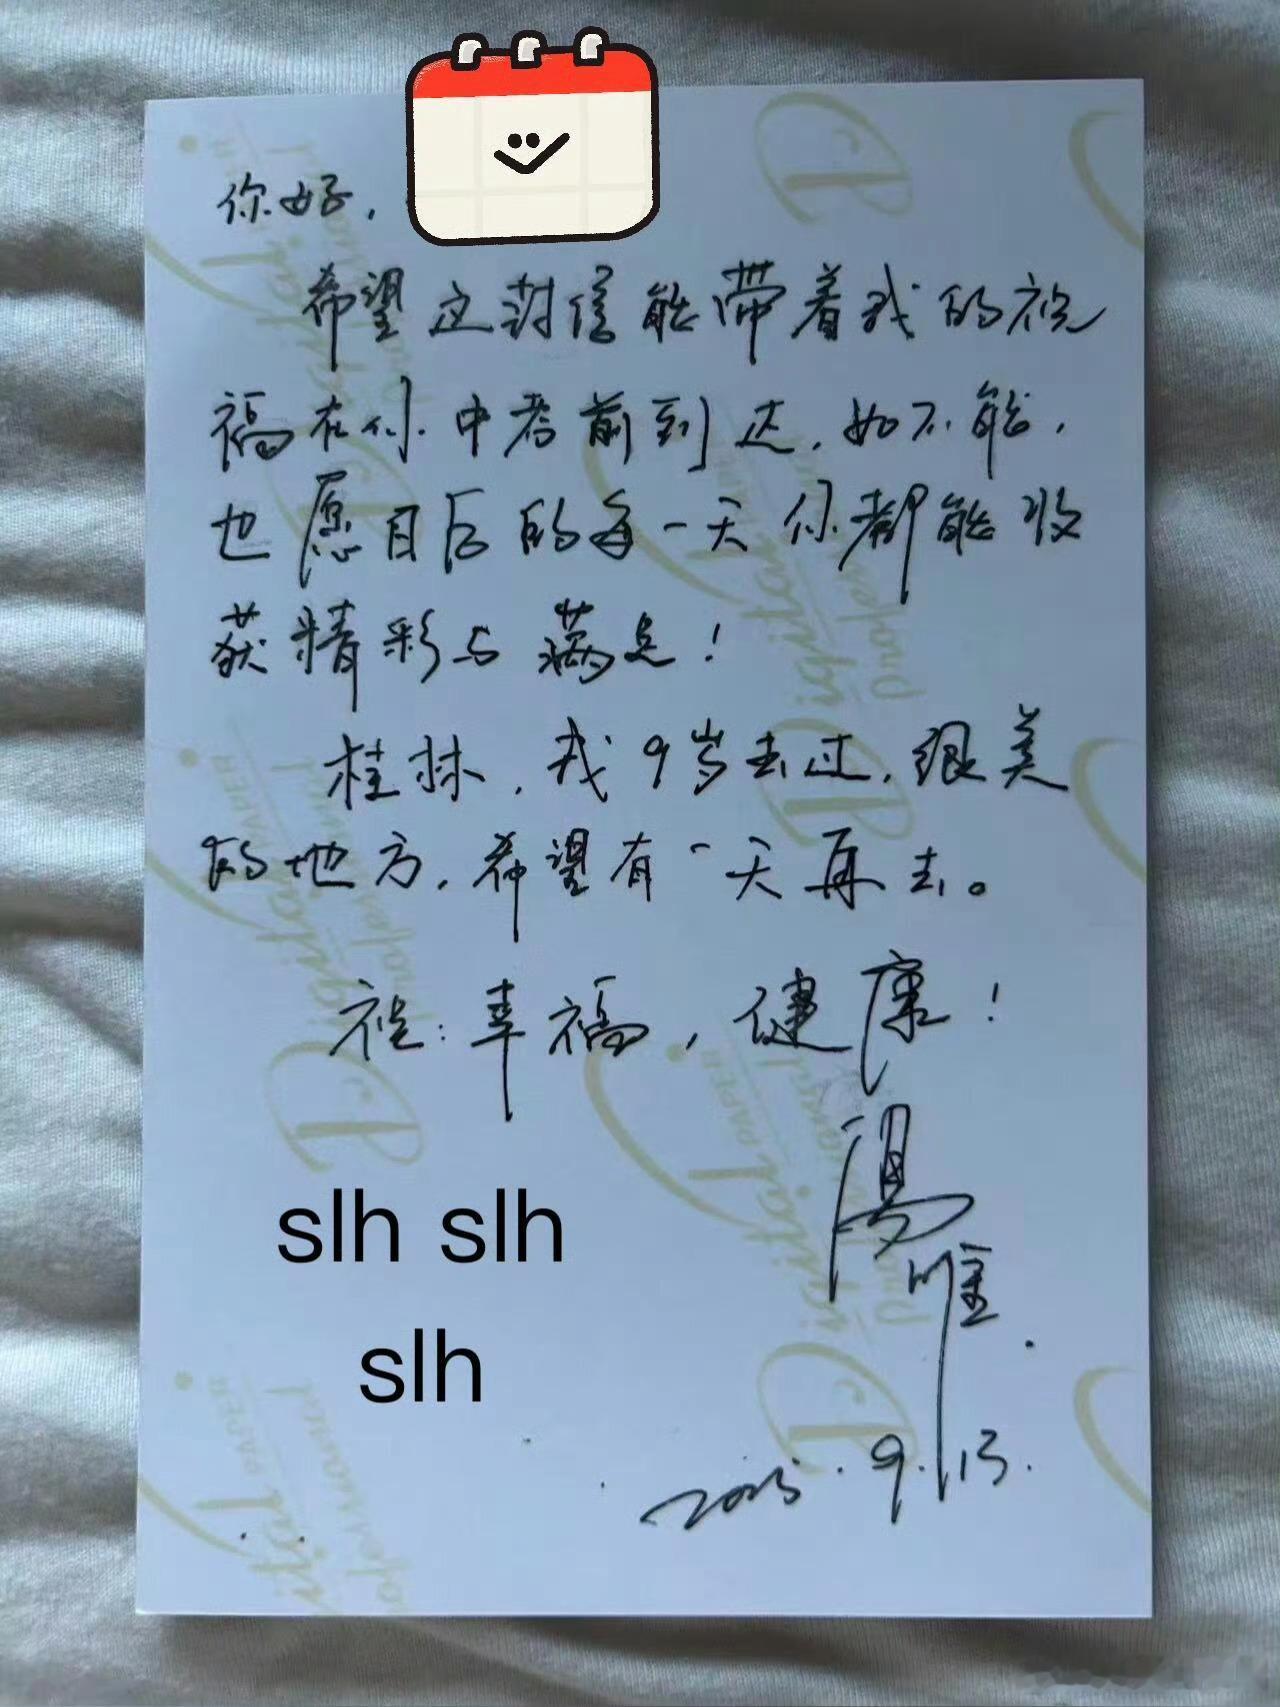 你好，
希望这封信能带着我的祝
福在你中考前到达，如不能，
也愿日后的每一天你都能收
获精彩与满足！
桂林，我9岁去过，很美
的地方，希望有一天再去。
祝：幸福，健康！
湯
唯
slh slh
slh
2025.9.13.